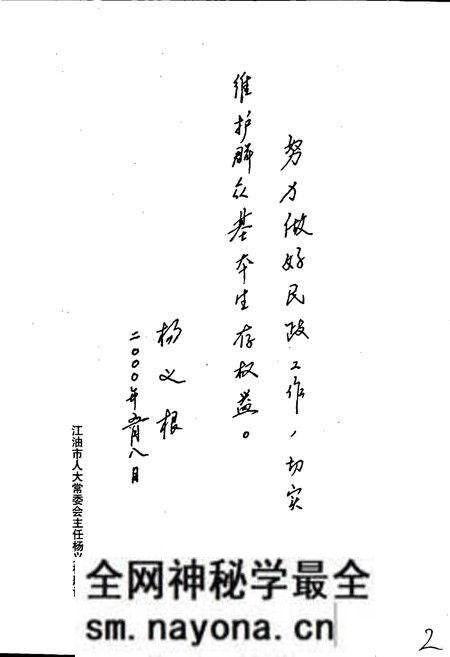 努力做好民政工作，切实
维护群众基本生存权益。
杨义根
二〇〇〇年五月八日
江油市人大常委会主任杨
全网神秘学最全
sm.nayona.cn
2